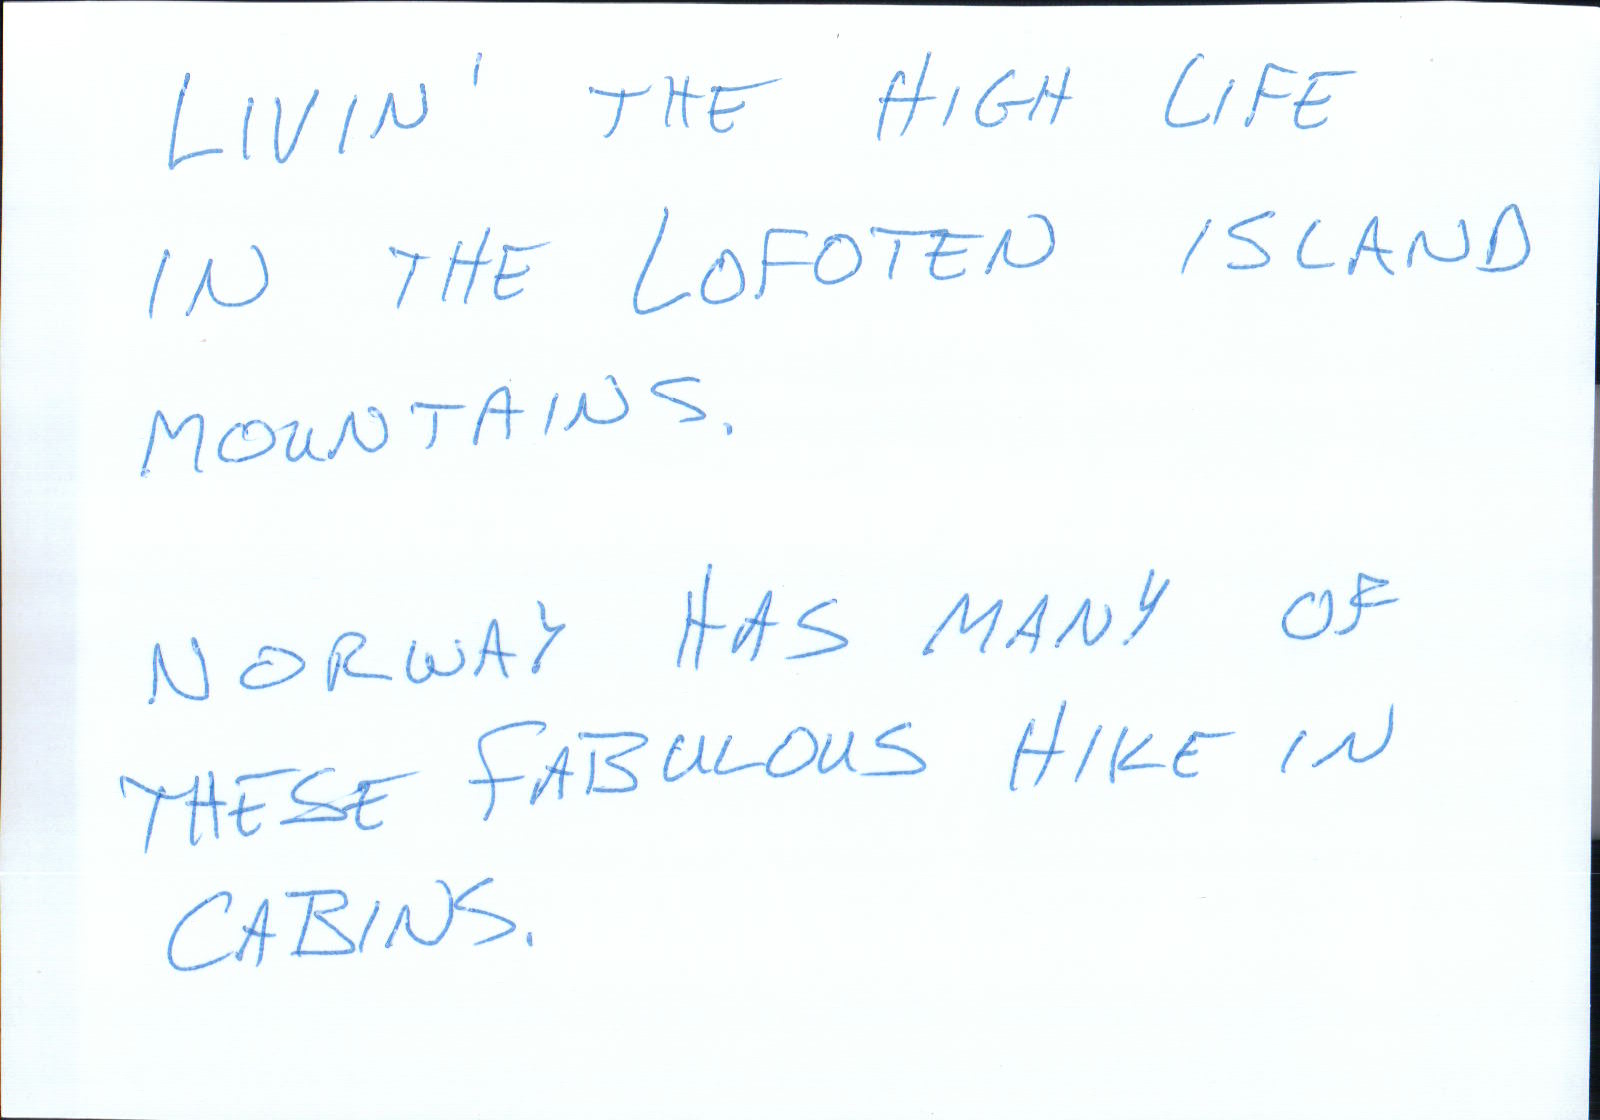 LIVIN' THE HIGH LIFE
IN THE LOFOTEN ISLAND
MOUNTAINS.
NORWAY HAS MANY OF
THESE FABULOUS HIKE IN
CABINS.